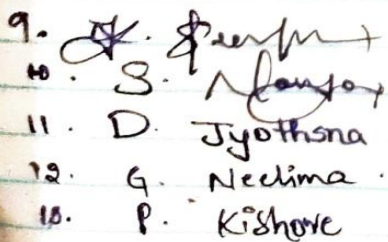 9.
10. S.
11. D. Jyothsna
12. G. Neelima.
13. P. Kishore